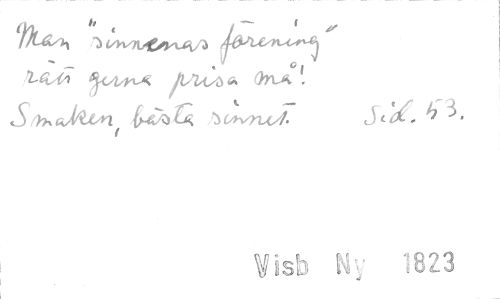 Man "sinnenas förening"
rätt gerna prisa må!
Smaken, bästa sinnet. Sid. 53.
Visb Ny 1823